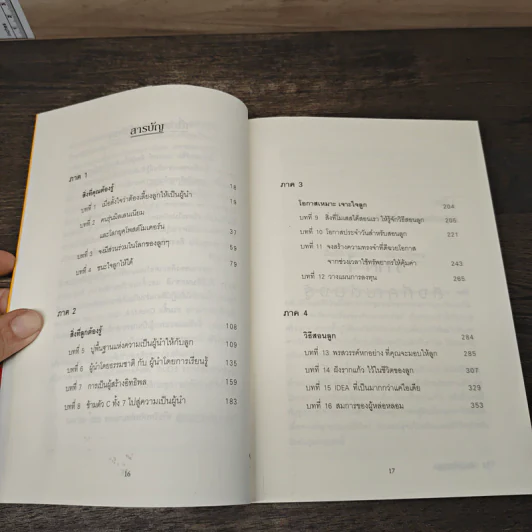 สารบัญ
ภาค 1
สิ่งที่คุณต้องรู้ 18
บทที่ 1 เมื่อตั้งใจว่าต้องเลี้ยงลูกให้เป็นผู้นำ 19
บทที่ 2 คนรุ่นมิลเลนเนียม
และโลกยุคโพสต์โมเดอร์น 31
บทที่ 3 จงมีส่วนร่วมในโลกของลูกๆ 59
บทที่ 4 ชนะใจลูกให้ได้ 79
ภาค 2
สิ่งที่ลูกต้องรู้ 108
บทที่ 5 ปูพื้นฐานแห่งความเป็นผู้นำให้กับลูก 109
บทที่ 6 ผู้นำโดยธรรมชาติ กับ ผู้นำโดยการเรียนรู้ 135
บทที่ 7 การเป็นผู้สร้างอิทธิพล 159
บทที่ 8 ข้ามตัว C ทั้ง 7 ไปสู่ความเป็นผู้นำ 183
16
ภาค 3
โอกาสเหมาะ เจาะใจลูก 204
บทที่ 9 สิ่งที่โมเสสได้สอนเรา ให้รู้จักวิธีสอนลูก 205
บทที่ 10 โอกาสประจำวันสำหรับสอนลูก 221
บทที่ 11 จงสร้างความทรงจำที่ดีฉวยโอกาส
จากช่วงเวลาใช้ทรัพยากรให้คุ้มค่า 243
บทที่ 12 วางแผนการลงทุน 265
ภาค 4
วิธีสอนลูก 284
บทที่ 13 พรสวรรค์หกอย่าง ที่คุณจะมอบให้ลูก 285
บทที่ 14 ฝังรากแก้ว ไว้ในชีวิตของลูก 307
บทที่ 15 IDEA ที่เป็นมากกว่าแค่ไอเดีย 329
บทที่ 16 สมการของผู้หล่อหลอม 353
17